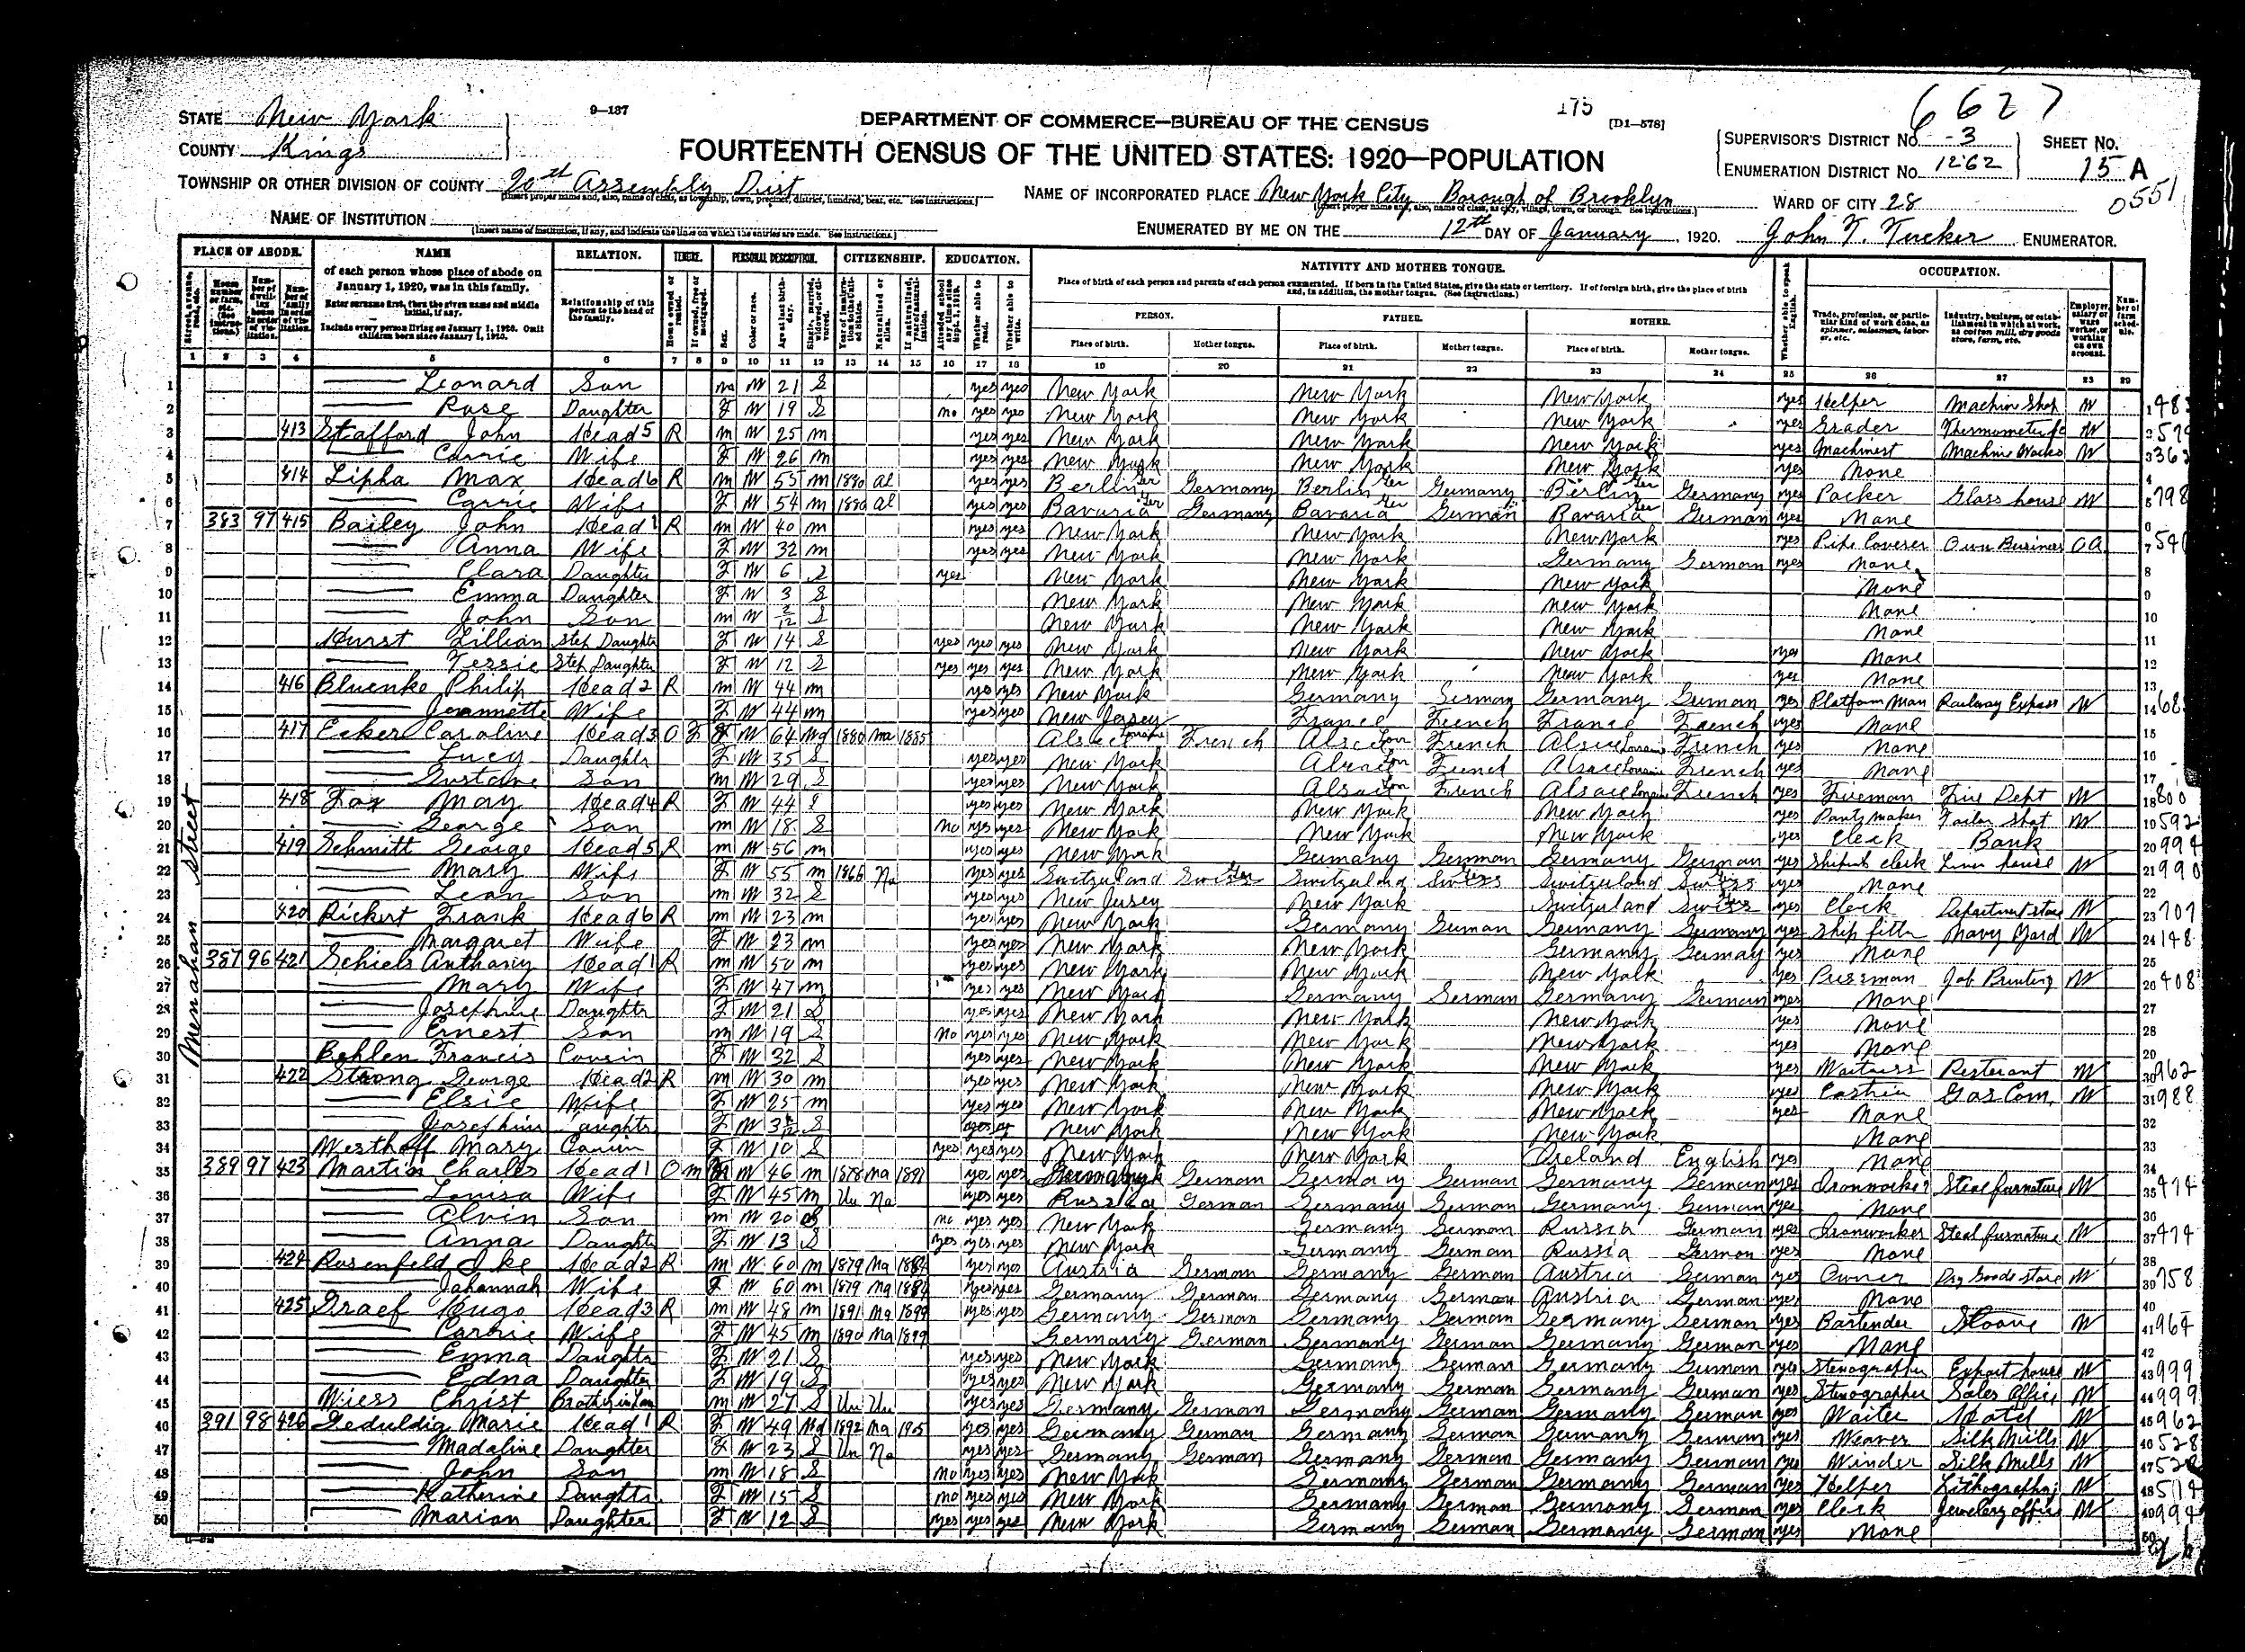 6627
STATE New York
9—137
DEPARTMENT OF COMMERCE—BUREAU OF THE CENSUS
175
[D1—578]
SUPERVISOR'S DISTRICT No. 3
SHEET NO.
COUNTY Kings
FOURTEENTH CENSUS OF THE UNITED STATES: 1920—POPULATION
ENUMERATION DISTRICT No. 1262
15 A
TOWNSHIP OR OTHER DIVISION OF COUNTY 20th Assembly Dist
NAME OF INCORPORATED PLACE New York City Borough of Brooklyn
WARD OF CITY 28
0551
NAME OF INSTITUTION
ENUMERATED BY ME ON THE 12th DAY OF January, 1920. John T. Tucker ENUMERATOR.
PLACE OF ABODE. NAME RELATION. TENURE. PERSONAL DESCRIPTION. CITIZENSHIP. EDUCATION. NATIVITY AND MOTHER TONGUE. OCCUPATION.
of each person whose place of abode on January 1, 1920, was in this family.
Enter surname first, then the given name and middle initial, if any.
Include every person living on January 1, 1920. Omit children born since January 1, 1920.
Relationship of this person to the head of the family.
Place of birth of each person and parents of each person enumerated. If born in the United States, give the state or territory. If of foreign birth, give the place of birth and, in addition, the mother tongue. (See Instructions.)
PERSON. FATHER. MOTHER.
Place of birth. Mother tongue. Place of birth. Mother tongue. Place of birth. Mother tongue.
1 2 3 4 5 6 7 8 9 10 11 12 13 14 15 16 17 18 19 20 21 22 23 24 25 26 27 28 29
Menahan Street
1 Leonard Son m W 21 S yes yes New York New York New York yes Helper Machine Shop W
2 Rose Daughter F W 19 S no yes yes New York New York New York yes Grader W
3 413 Stafford John Head 5 R m W 25 m yes yes New York New York New York yes Machinest Machine Works W
4 Carrie Wife F W 26 m yes yes New York New York New York yes None
5 414 Lipha Max Head 6 R m W 55 m 1880 al yes yes Berlin Ger Germany Berlin Ger Germany Berlin Ger Germany yes Packer Glass house W
6 Carrie Wife F W 54 m 1880 al yes yes Bavaria Ger Germany Bavaria Ger German Bavaria Ger German yes None
7 383 97 415 Bailey John Head 1 R m W 40 m yes yes New York New York New York yes Pipe Coverer Own Business OA
8 Anna Wife F W 32 m yes yes New York New York Germany German yes None
9 Clara Daughter F W 6 S yes New York New York New York None
10 Emma Daughter F W 3 S New York New York New York None
11 John Son m W 2/12 S New York New York New York None
12 Hurst Lillian Step Daughter F W 14 S yes yes yes New York New York New York yes None
13 Tessie Step Daughter F W 12 S yes yes yes New York New York New York yes None
14 416 Bluenke Philip Head 2 R m W 44 m yes yes New York Germany German Germany German yes Platform Man Railway Express W
15 Jeannette Wife F W 44 m yes yes New Jersey France French France French yes None
16 417 Ecker Caroline Head 3 O F F W 64 Wd 1880 Na 1885 Alsace Lorraine French Alsace Lorr French Alsace Lorraine French yes None
17 Lucy Daughter F W 35 S yes yes New York Alsace Lorr French Alsace Lorraine French yes None
18 Gustave Son m W 29 S yes yes New York Alsace Lorr French Alsace Lorraine French yes Fireman Fire Dept W
19 418 Fox May Head 4 R F W 44 S yes yes New York New York New York yes Pants maker Tailor Shop W
20 George Son m W 18 S no yes yes New York New York New York yes Clerk Bank
21 419 Schmitt George Head 5 R m W 56 m yes yes New York Germany German Germany German yes W
22 Mary Wife F W 55 m 1866 Na yes yes Switzerland Swiss Switzerland Swiss Switzerland Swiss yes None
23 Son m W 32 S yes yes New Jersey New York Switzerland Swiss yes Clerk Department store W
24 420 Rickert Frank Head 6 R m W 23 m yes yes New York Germany German Germany Germany yes Ship fitter Navy Yard W
25 Margaret Wife F W 23 m yes yes New York New York Germany Germany yes None
26 387 96 421 Schiels Anthony Head 1 R m W 50 m yes yes New York New York New York yes Pressman Job Printing W
27 Mary Wife F W 47 m yes yes New York Germany German Germany German yes None
28 Josephine Daughter F W 21 S yes yes New York New York New York yes None
29 Ernest Son m W 19 S no yes yes New York New York New York yes None
30 Behlen Francis Cousin F W 32 S yes yes New York New York New York yes Waitress Resterant W
31 422 Strong George Head 2 R m W 30 m yes yes New York New York New York yes Gas Com. W
32 Elsie Wife F W 25 m yes yes New York New York New York yes None
33 Josephine Daughter F W S New York New York New York None
34 Westhoff Mary Cousin F W 10 S yes yes yes New York New York Ireland English yes None
35 389 97 423 Martin Charles Head 1 O m m W 46 m 1878 Na 1891 yes yes Germany German Germany German Germany German yes Ironworker Steal furnature W
36 Louisa Wife F W 45 m Un Na yes yes Russia German Germany German Germany German yes None
37 Alvin Son m W 20 S no yes yes New York Germany German Russia German yes Ironworker Steal furnature W
38 Anna Daughter F W 13 S yes yes yes New York Germany German Russia German yes None
39 424 Rosenfeld Ike Head 2 R m W 60 m 1879 Na 1884 yes yes Austria German Germany German Austria German yes Owner Dry Goods store W
40 Johannah Wife F W 60 m 1879 Na 1884 yes yes Germany German Germany German Austria German yes None
41 425 Graef Hugo Head 3 R m W 48 m 1891 Na 1899 yes yes Germany German Germany German Germany German yes Bartender Sloone W
42 Carrie Wife F W 45 m 1890 Na 1899 Germany German Germany German Germany German yes None
43 Emma Daughter F W 21 S yes yes New York Germany German Germany German yes Stenographer Export house W
44 Edna Daughter F W 19 S yes yes New York Germany German Germany German yes Stenographer Sales Office W
45 Wiess Christ Brother in law m W 27 S Un Un yes yes Germany German Germany German Germany German yes Waiter Hotel W
46 391 98 426 Geduldig Marie Head 1 R F W 49 Wd 1892 Na 1905 yes yes Germany German Germany German Germany German yes Weaver Silk Mills W
47 Madaline Daughter F W 23 S Un Na yes yes Germany German Germany German Germany German yes Winder Silk Mills W
48 John Son m W 18 S no yes yes New York Germany German Germany German yes Helper W
49 Katherine Daughter F W 15 S no yes yes New York Germany German Germany German yes Clerk Jewelery office W
50 Marian Daughter F W 12 S yes yes yes New York Germany German Germany German yes None